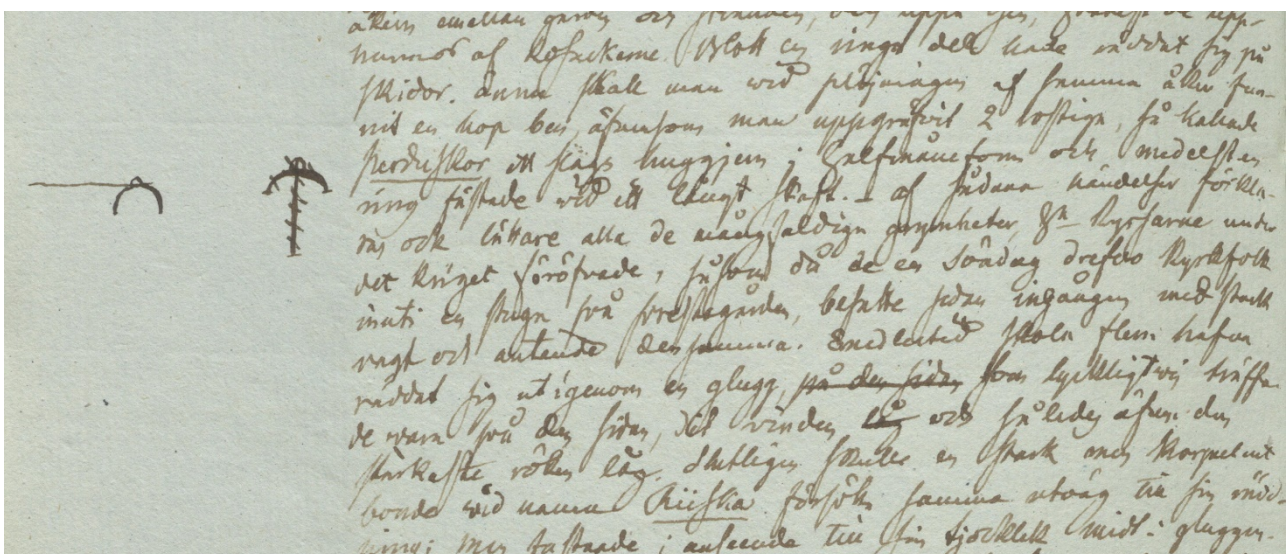 åkern emellan gården och stranden, och uppå isen, blefvo de upp-
hunnos af Kosackerne. Blott en ringa del hade räddat sig på
skidor. ännu skall man wid plöjningen af samma åker fun-
nit en hop ben, äfwensom man uppgräfvit 2 rostiga, så kallade
ett slags huggjern i halfmåneform och medelst en
ring fästade wid ett långt skaft. – af sådana händelser förkla-
ras ock lättare alla de mångfaldiga Ryssarne under
det kriget föröfvade, såsom då de en Söndag drefvo Kyrkfolk
inuti en stuga på prestegården, besatte sedan ingången med stark
vagt och antende densamma. Emedlertid skola flere hafva
räddat sig utigenom en glugg, på den sidan som lyckligtvis träffa-
de wara på den sidan, dit vinden låg och således äfven den
starkaste röken låg. Slutligen skulle en stark men korpulent
bonde wid namn Riiska försökt samma utväg till sin rädd-
ning; men fastnade i anseende till sin tjocklek midt i gluggen.